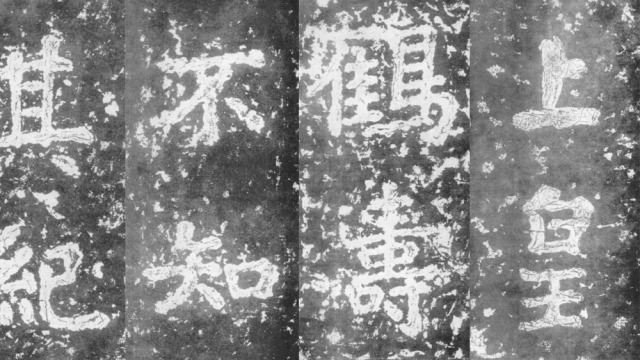 上皇
鶴壽
不知
其紀